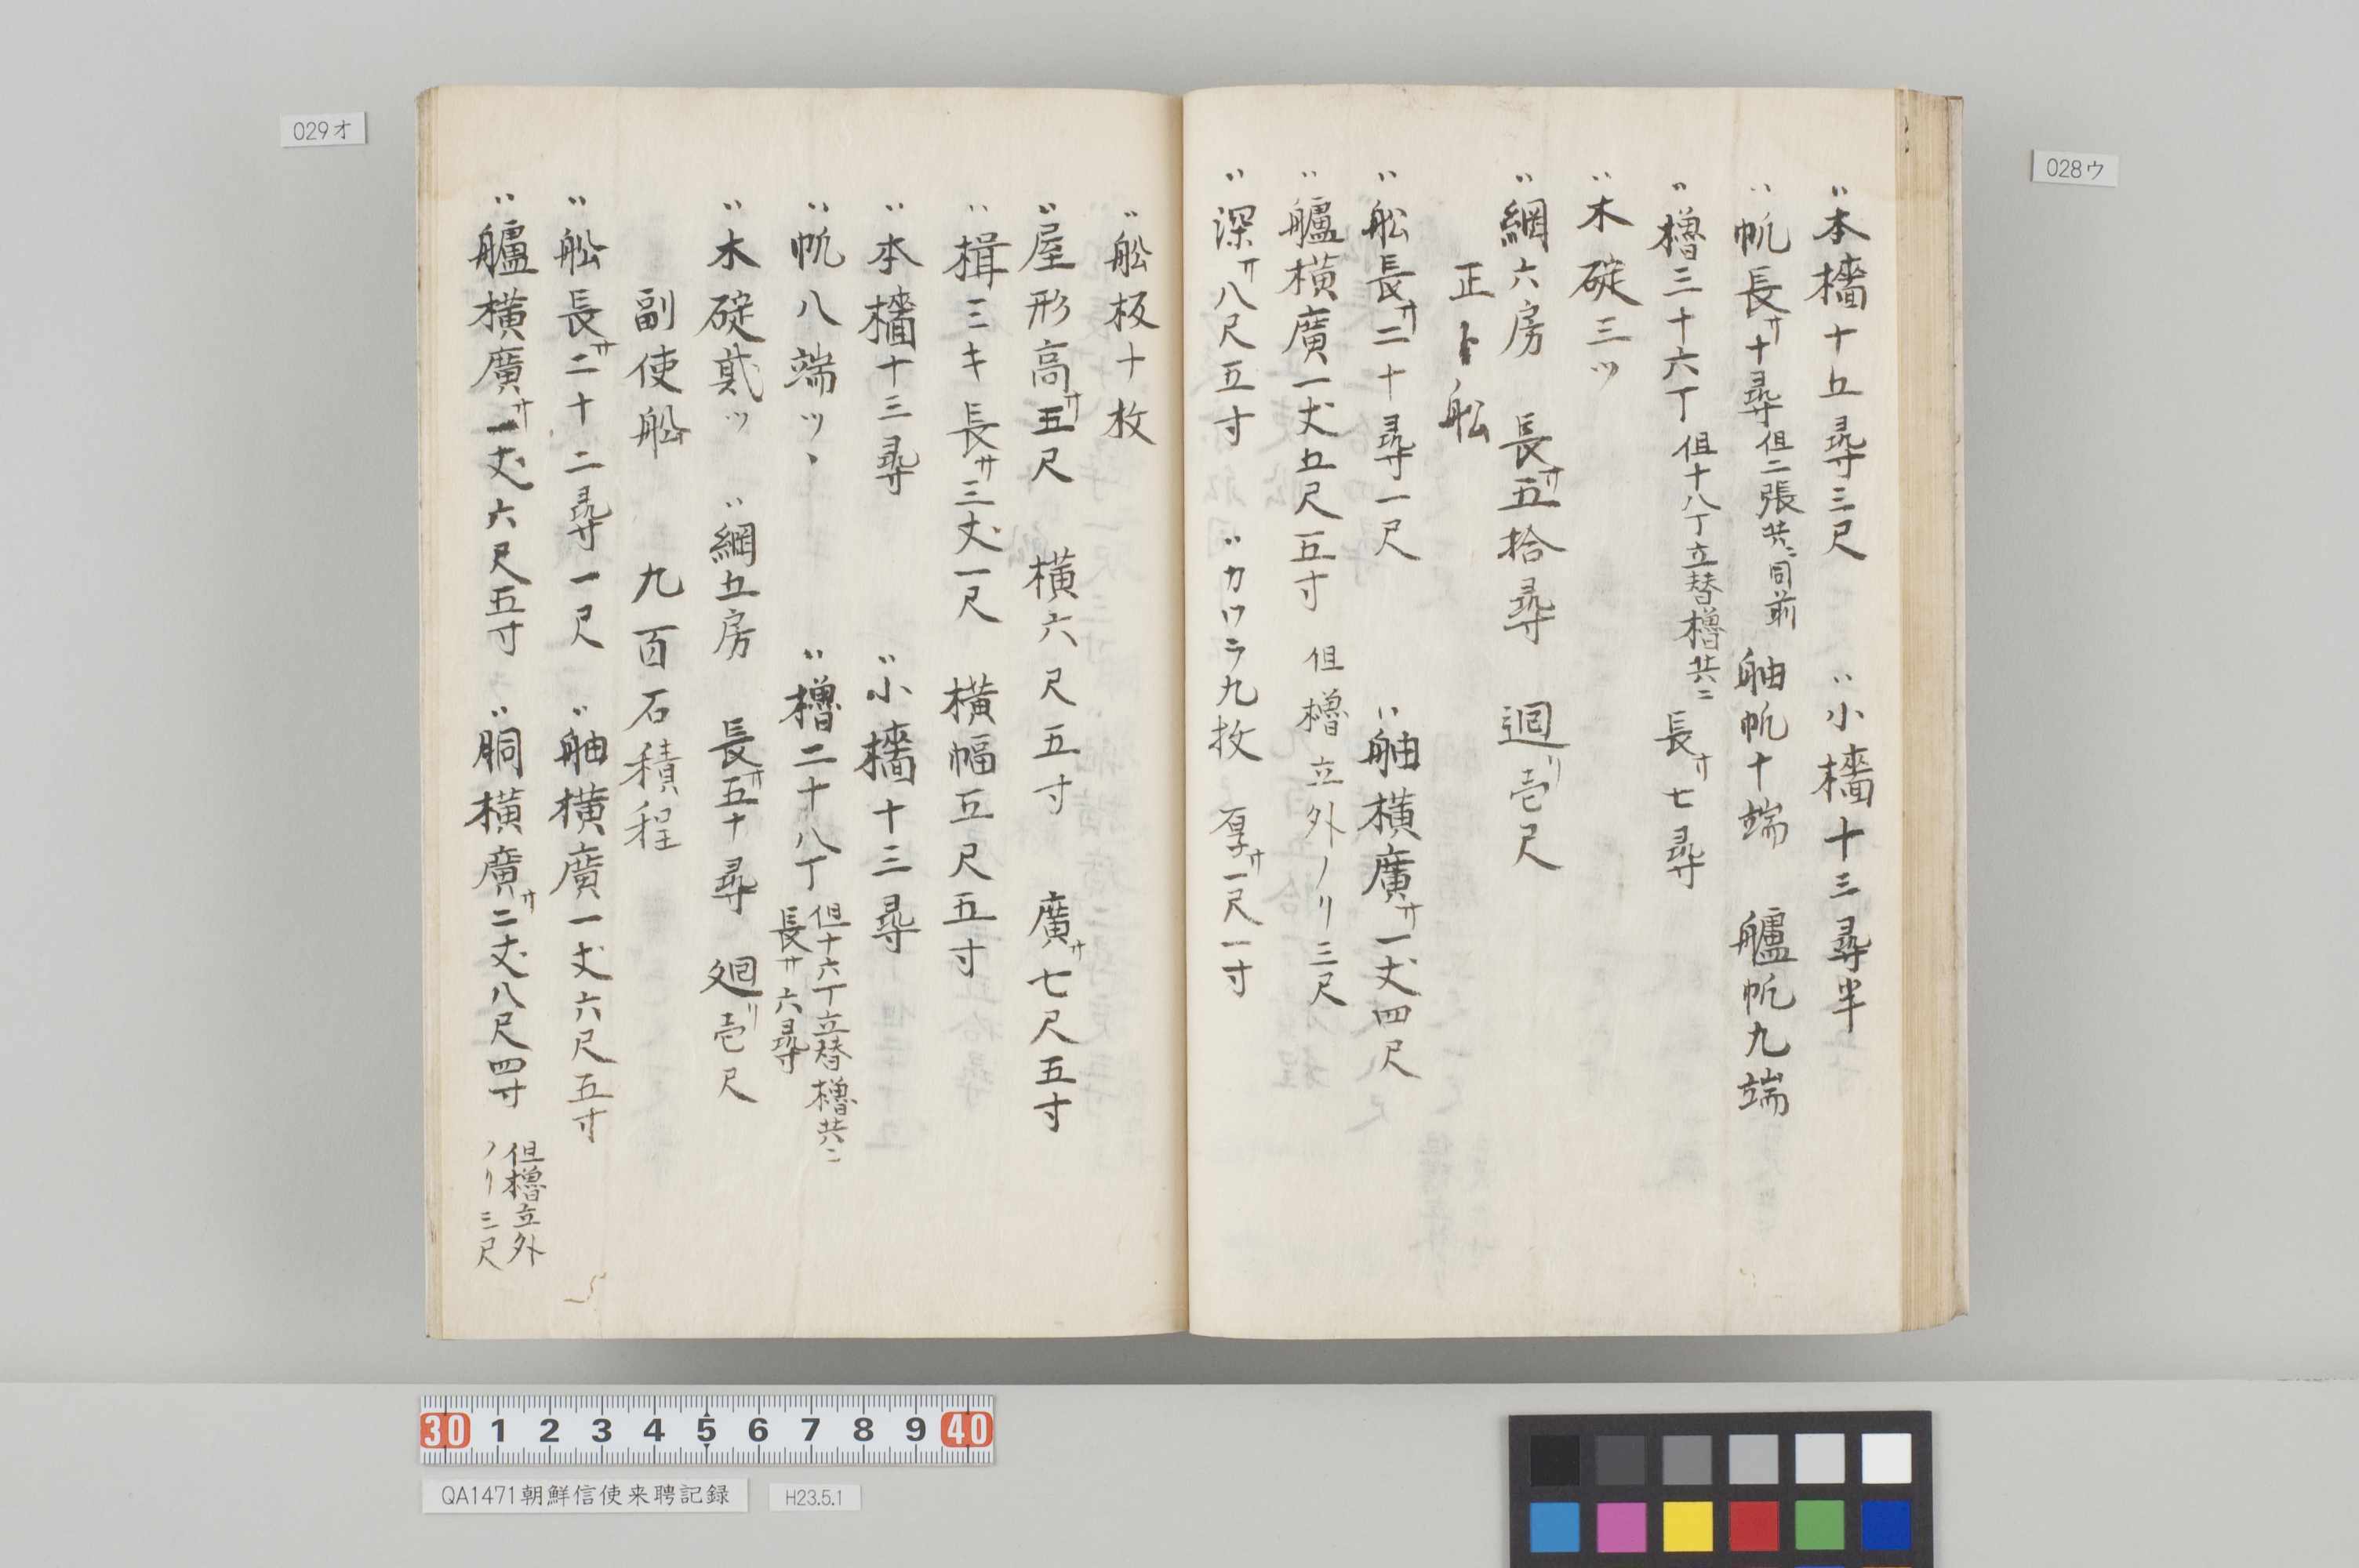 〃本檣十五尋三尺　〃小檣十三尋半
〃帆長サ十尋但二張共ニ同前　舳帆十端　艫帆九端
〃櫓三十六丁但十八丁立替櫓共ニ　長サ七尋
〃木碇三ツ
〃綱六房　長サ五拾尋　廻リ壱尺
正ト舩
〃舩長サ二十尋一尺　〃舳横廣サ一丈四尺
〃艫横廣一丈五尺五寸　但櫓立外ノリ三尺
〃深サ八尺五寸　〃カワラ九枚　厚サ一尺一寸
〃舩板十枚
〃屋形高サ五尺　横六尺五寸　廣サ七尺五寸
〃楫三キ長サ三丈一尺　横幅五尺五寸
〃本檣十三尋　〃小檣十三尋
〃帆八端ツヽ　〃櫓二十八丁但十六丁立替櫓共ニ
長サ六尋
〃木碇貳ツ　〃綱五房　長サ五十尋　廻リ壱尺
副使船　九百石積程
〃舩長サ二十二尋一尺　〃舳横廣一丈六尺五寸
〃艫横廣サ一丈六尺五寸　〃胴横廣サ二丈八尺四寸　但櫓立外
ノリ三尺
029オ
028ウ
30 1 2 3 4 5 6 7 8 9 40
QA1471朝鮮信使来聘記録
H23.5.1